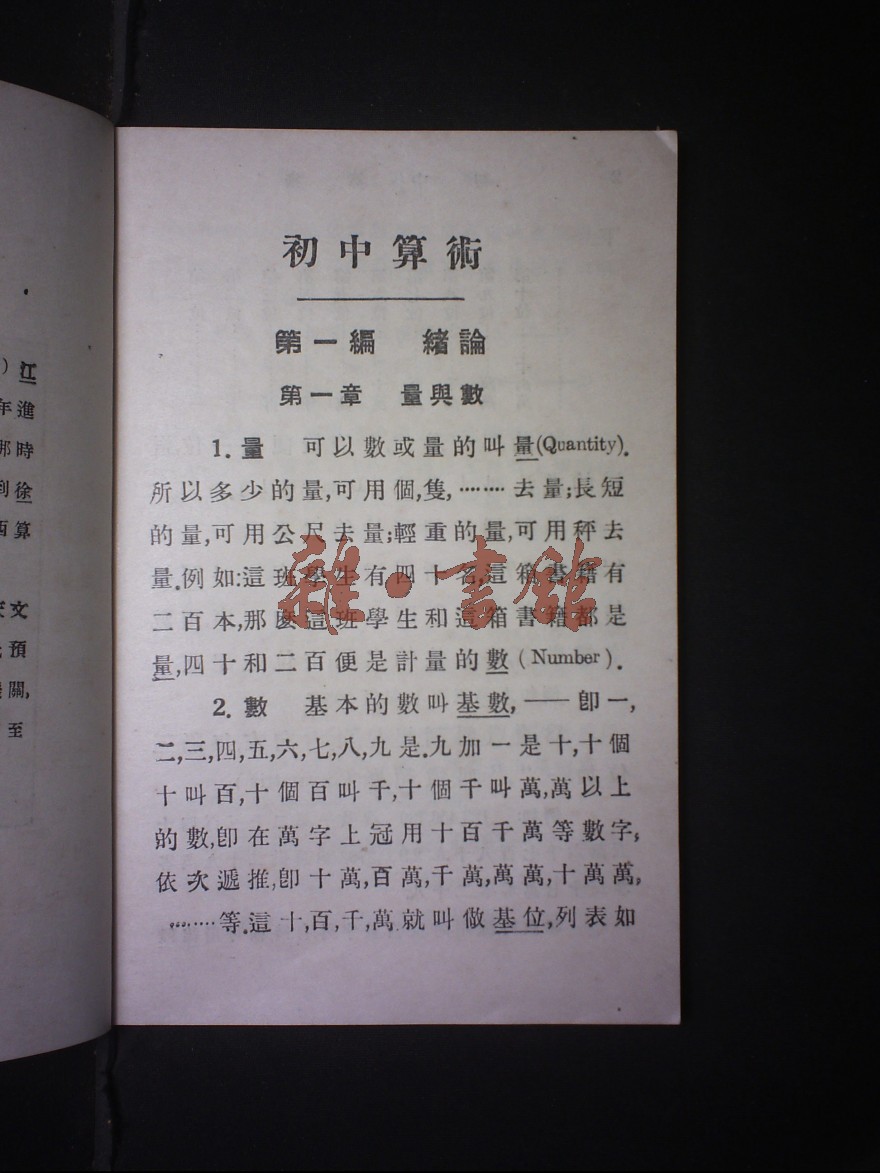 初中算術
第一編 緒論
第一章 量與數
1. 量 可以數或量的叫量(Quantity).
所以多少的量,可用個,隻,………去量;長短
的量,可用公尺去量;輕重的量,可用秤去
量.例如:這班學生有四十名,這箱書籍有
二百本,那麼這班學生和這箱書籍都是
量,四十和二百便是計量的數(Number).
2. 數 基本的數叫基數,——卽一,
二,三,四,五,六,七,八,九是.九加一是十,十個
十叫百,十個百叫千,十個千叫萬,萬以上
的數,卽在萬字上冠用十百千萬等數字,
依次遞推,卽十萬,百萬,千萬,萬萬,十萬萬,
………等.這十,百,千,萬就叫做基位,列表如
雜·書館
江
年進
那時
到徐
西算
文
預
關,
至